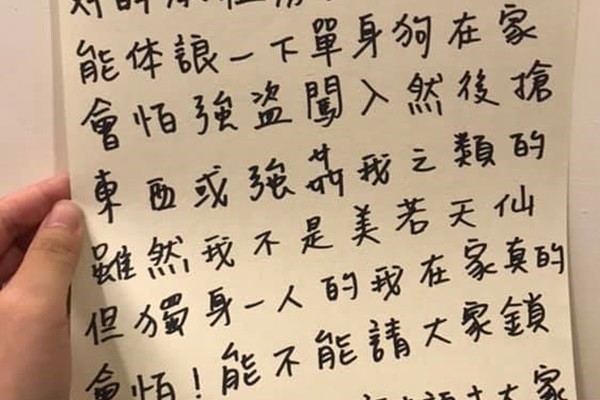 好的
能体誏一下單身狗在家
會怕強盜闖入然後搶
東西或強我之類的
雖然我不是美若天仙
但獨身一人的我在家真的
會怕！能不能請大家鎖
大家